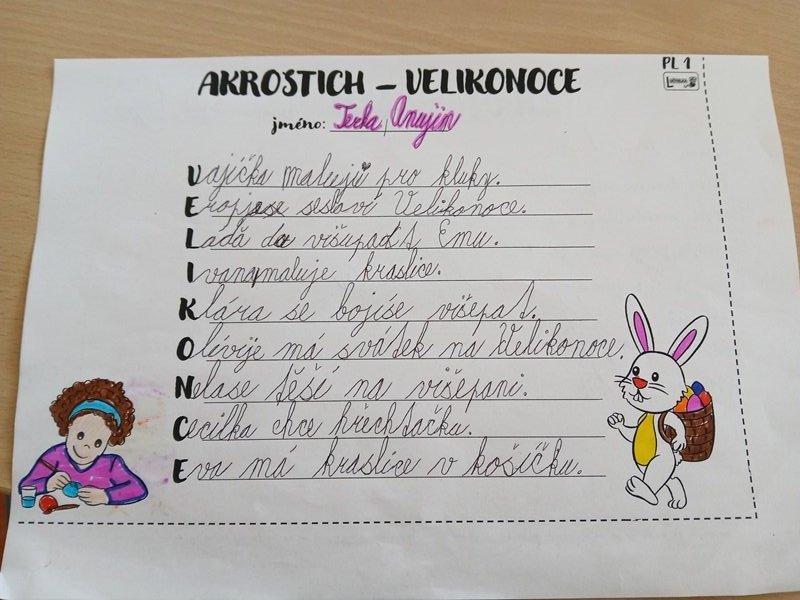 AKROSTICH – VELIKONOCE
PL 1
jméno: Terka Anujin
Vajíčka malují pro kluky.
Evropjase seslaví Velikonoce.
Laďa de višupadt Emu.
Ivanamaluje kraslice.
Klára se bojíse višepat.
Olívije má svátek na Velikonoce.
Nelase těší na višepani.
Cecilka chce hřechtačku.
Eva má kraslice v košíčku.